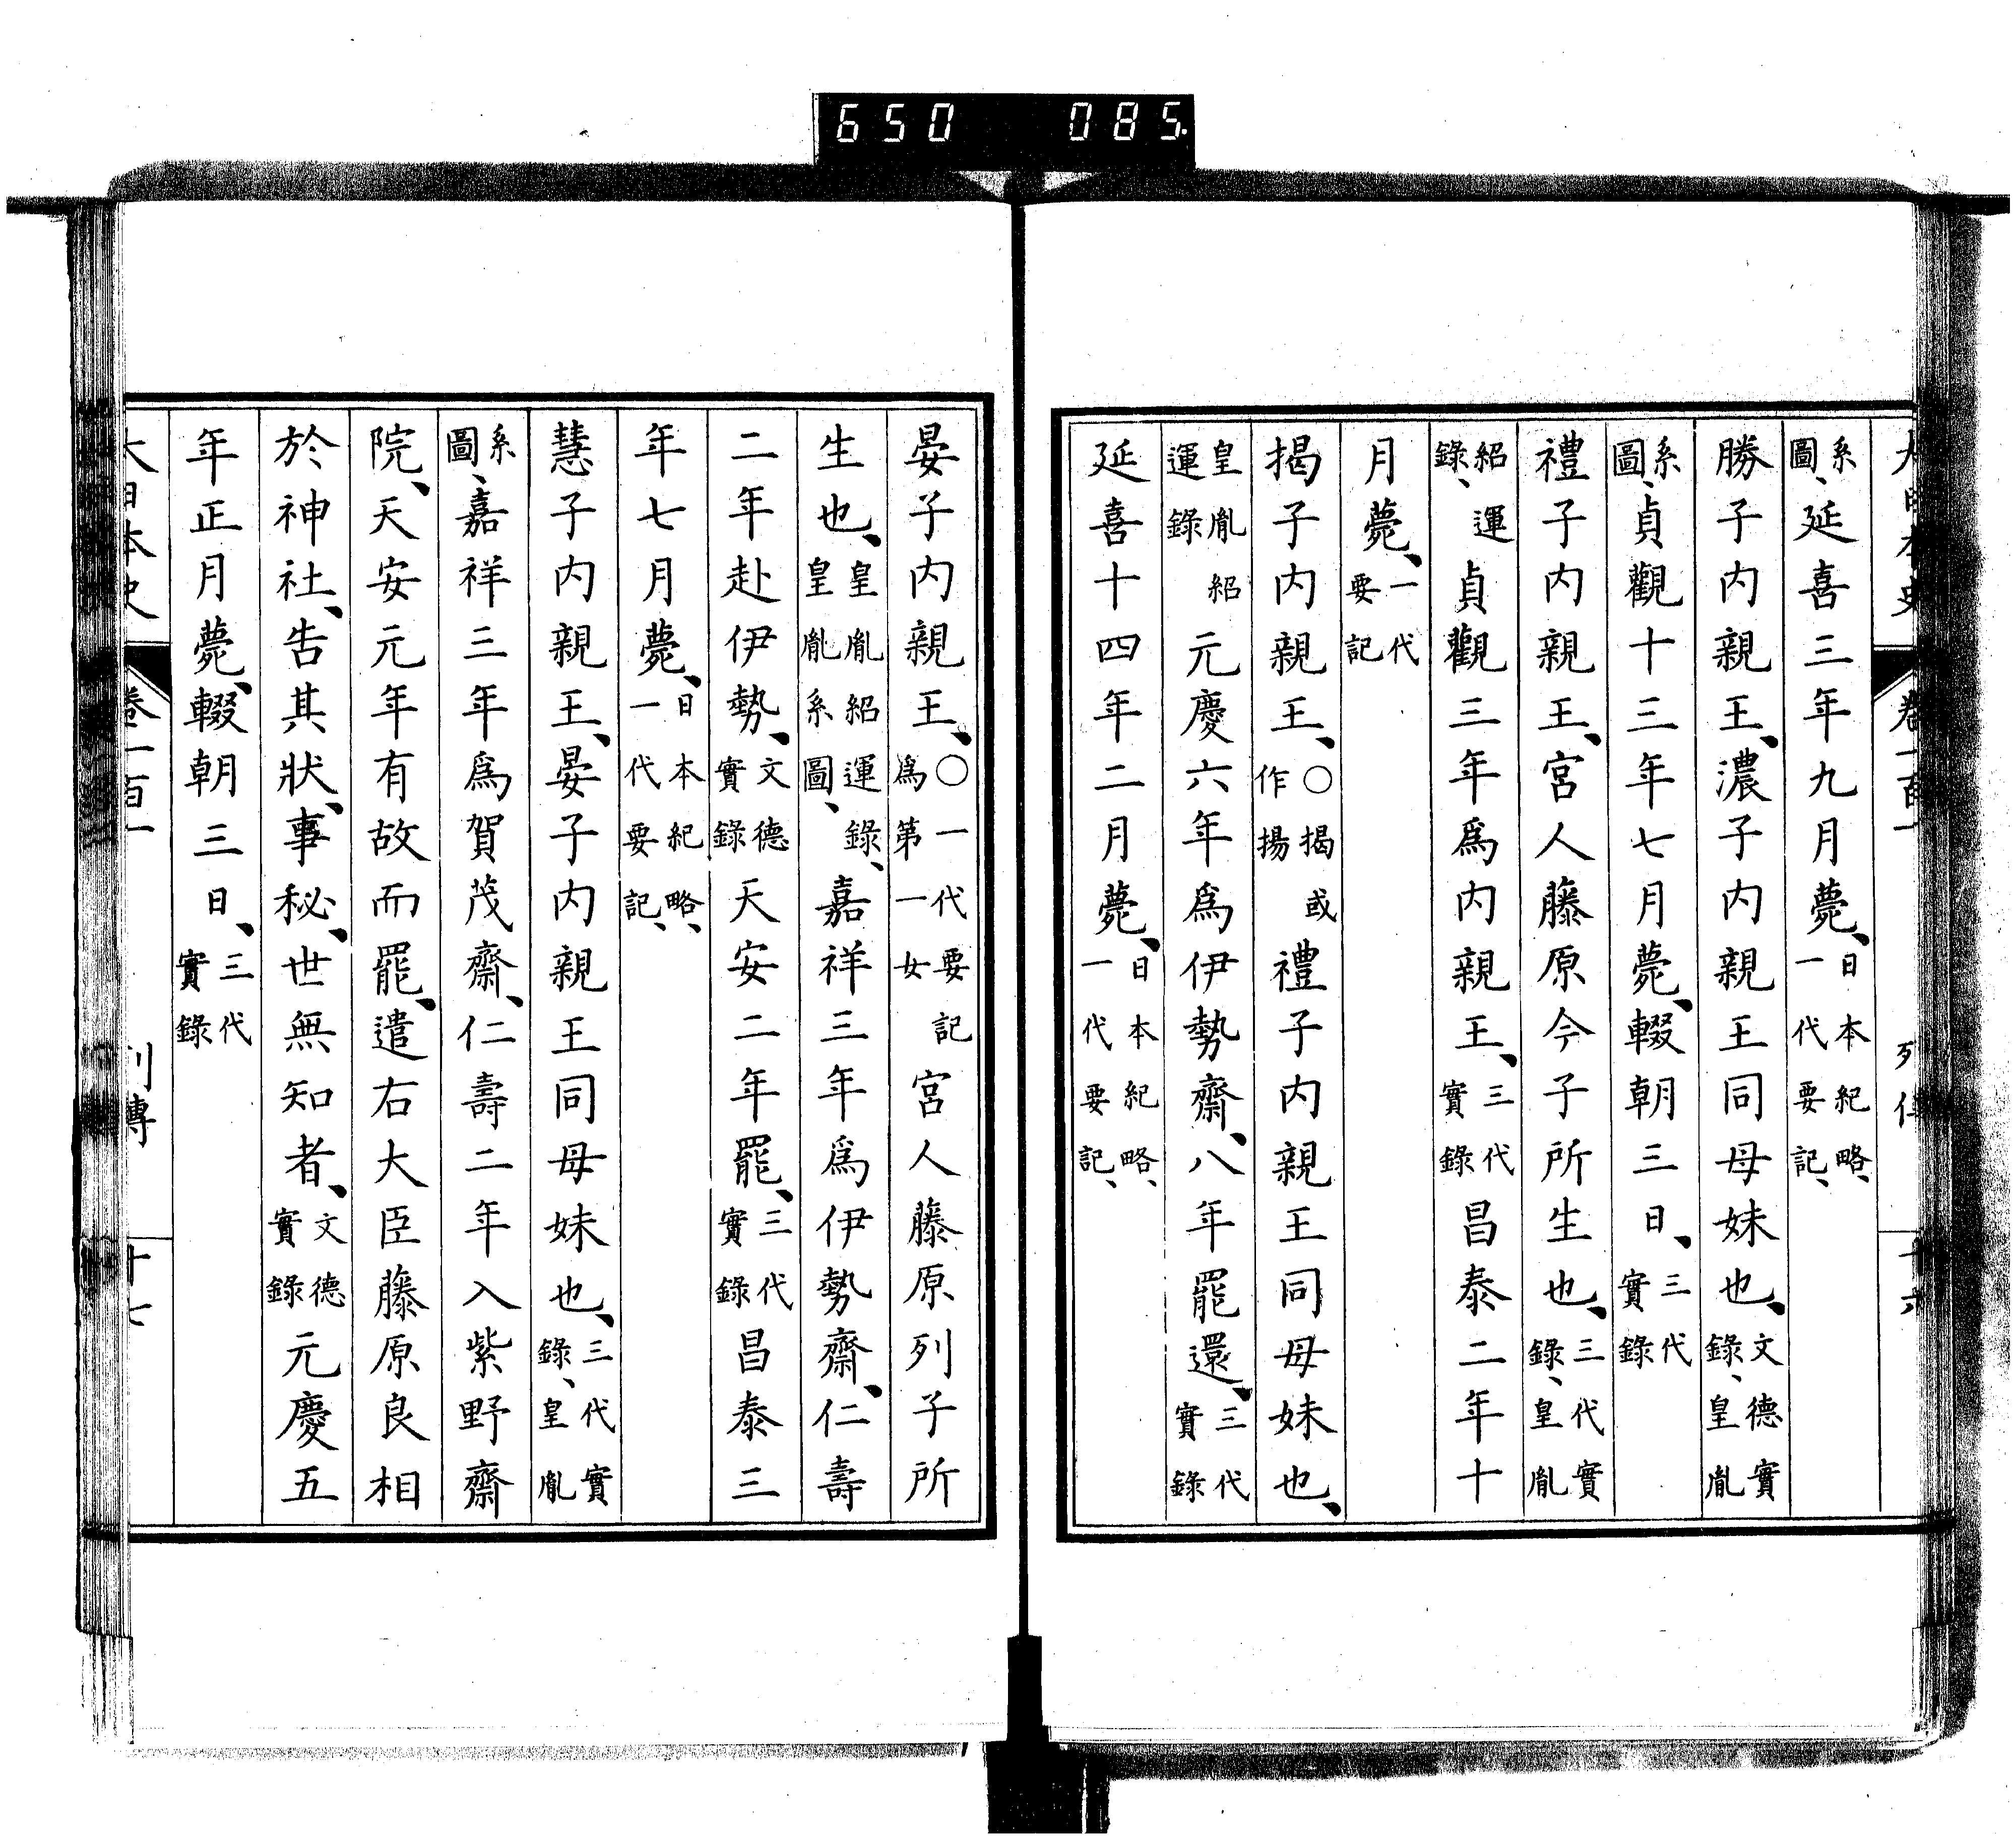 650 085
大日本史 卷一百一 列傳 十六
系圖、延喜三年九月薨、日本紀略、一代要記、
勝子内親王、濃子内親王同母妹也、文德實錄、皇胤
系圖、貞觀十三年七月薨、輟朝三日、三代實錄
禮子内親王、宮人藤原今子所生也、三代實錄、皇胤
紹運錄、貞觀三年爲内親王、三代實錄昌泰二年十
月薨、一代要記
揭子内親王、○揭或作揚禮子内親王同母妹也、
皇胤紹運錄元慶六年爲伊勢齋、八年罷還、三代實錄
延喜十四年二月薨、日本紀略、一代要記、
晏子内親王、○一代要記爲第一女宮人藤原列子所
生也、皇胤紹運錄、皇胤系圖、嘉祥三年爲伊勢齋、仁壽
二年赴伊勢、文德實錄天安二年罷、三代實錄昌泰三
年七月薨、日本紀略、一代要記、
慧子内親王、晏子内親王同母妹也、三代實錄、皇胤
系圖、嘉祥三年爲賀茂齋、仁壽二年入紫野齋
院、天安元年有故而罷、遣右大臣藤原良相
於神社、告其狀、事秘、世無知者、文德實錄元慶五
年正月薨、輟朝三日、三代實錄
大日本史 卷一百一 列傳 十七